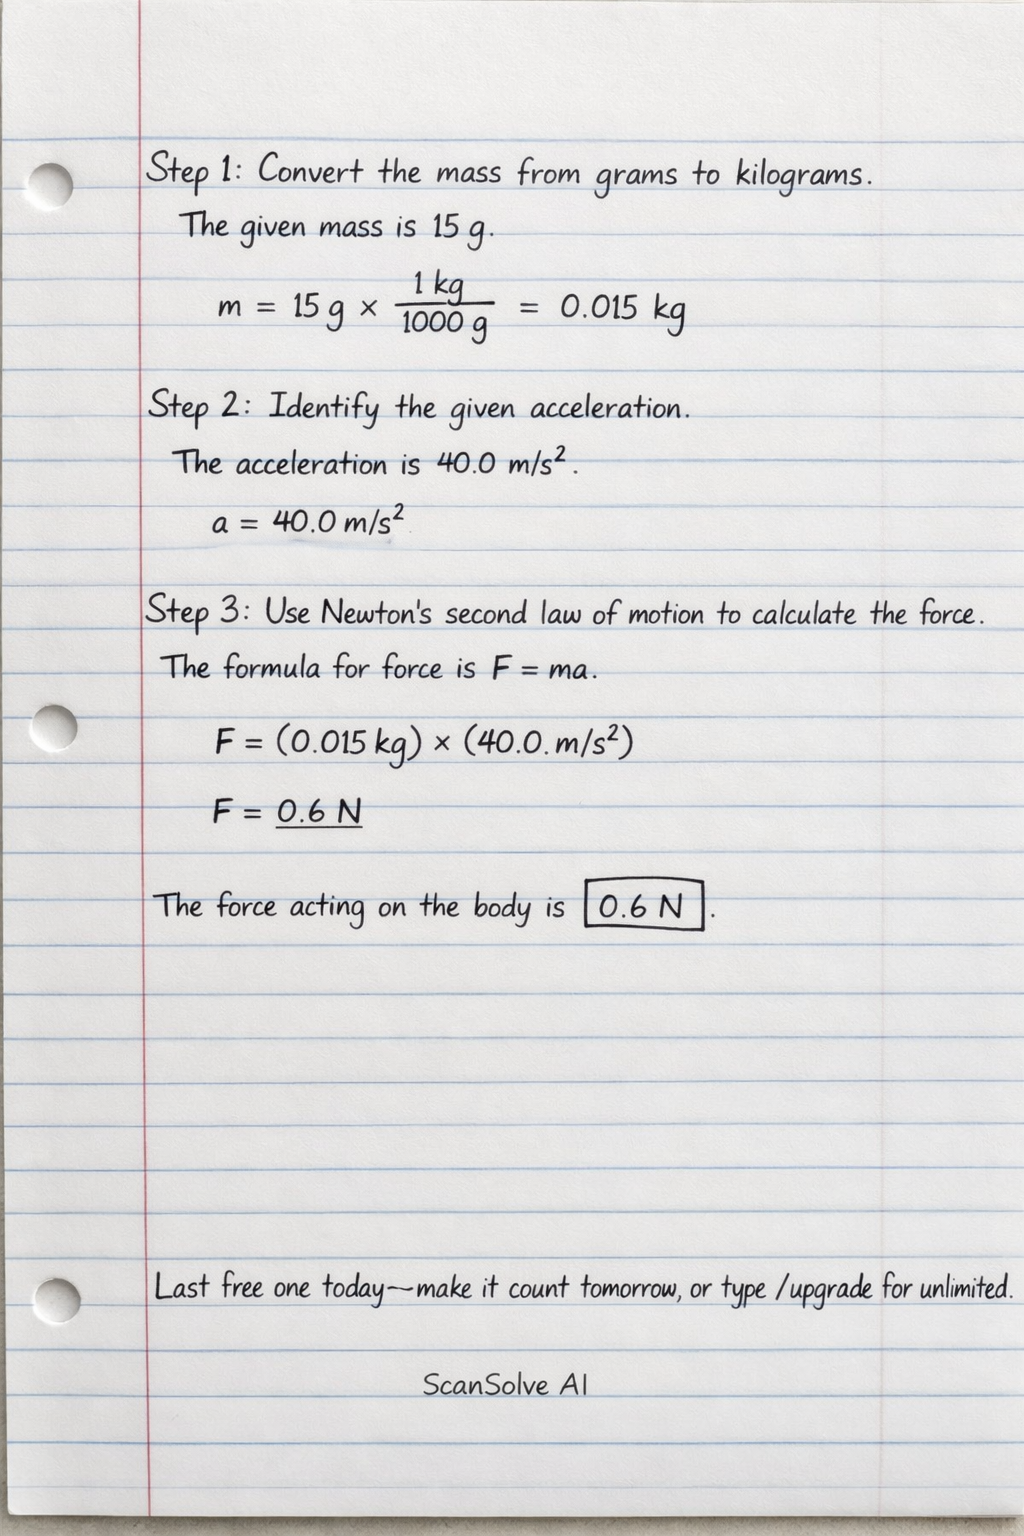 Step 1: Convert the mass from grams to kilograms.
The given mass is 15 g.
m = 15 g × 1 kg / 1000 g = 0.015 kg
Step 2: Identify the given acceleration.
The acceleration is 40.0 m/s².
a = 40.0 m/s²
Step 3: Use Newton's second law of motion to calculate the force.
The formula for force is F = ma.
F = (0.015 kg) × (40.0. m/s²)
F = 0.6 N
The force acting on the body is 0.6 N.
Last free one today—make it count tomorrow, or type /upgrade for unlimited.
ScanSolve AI